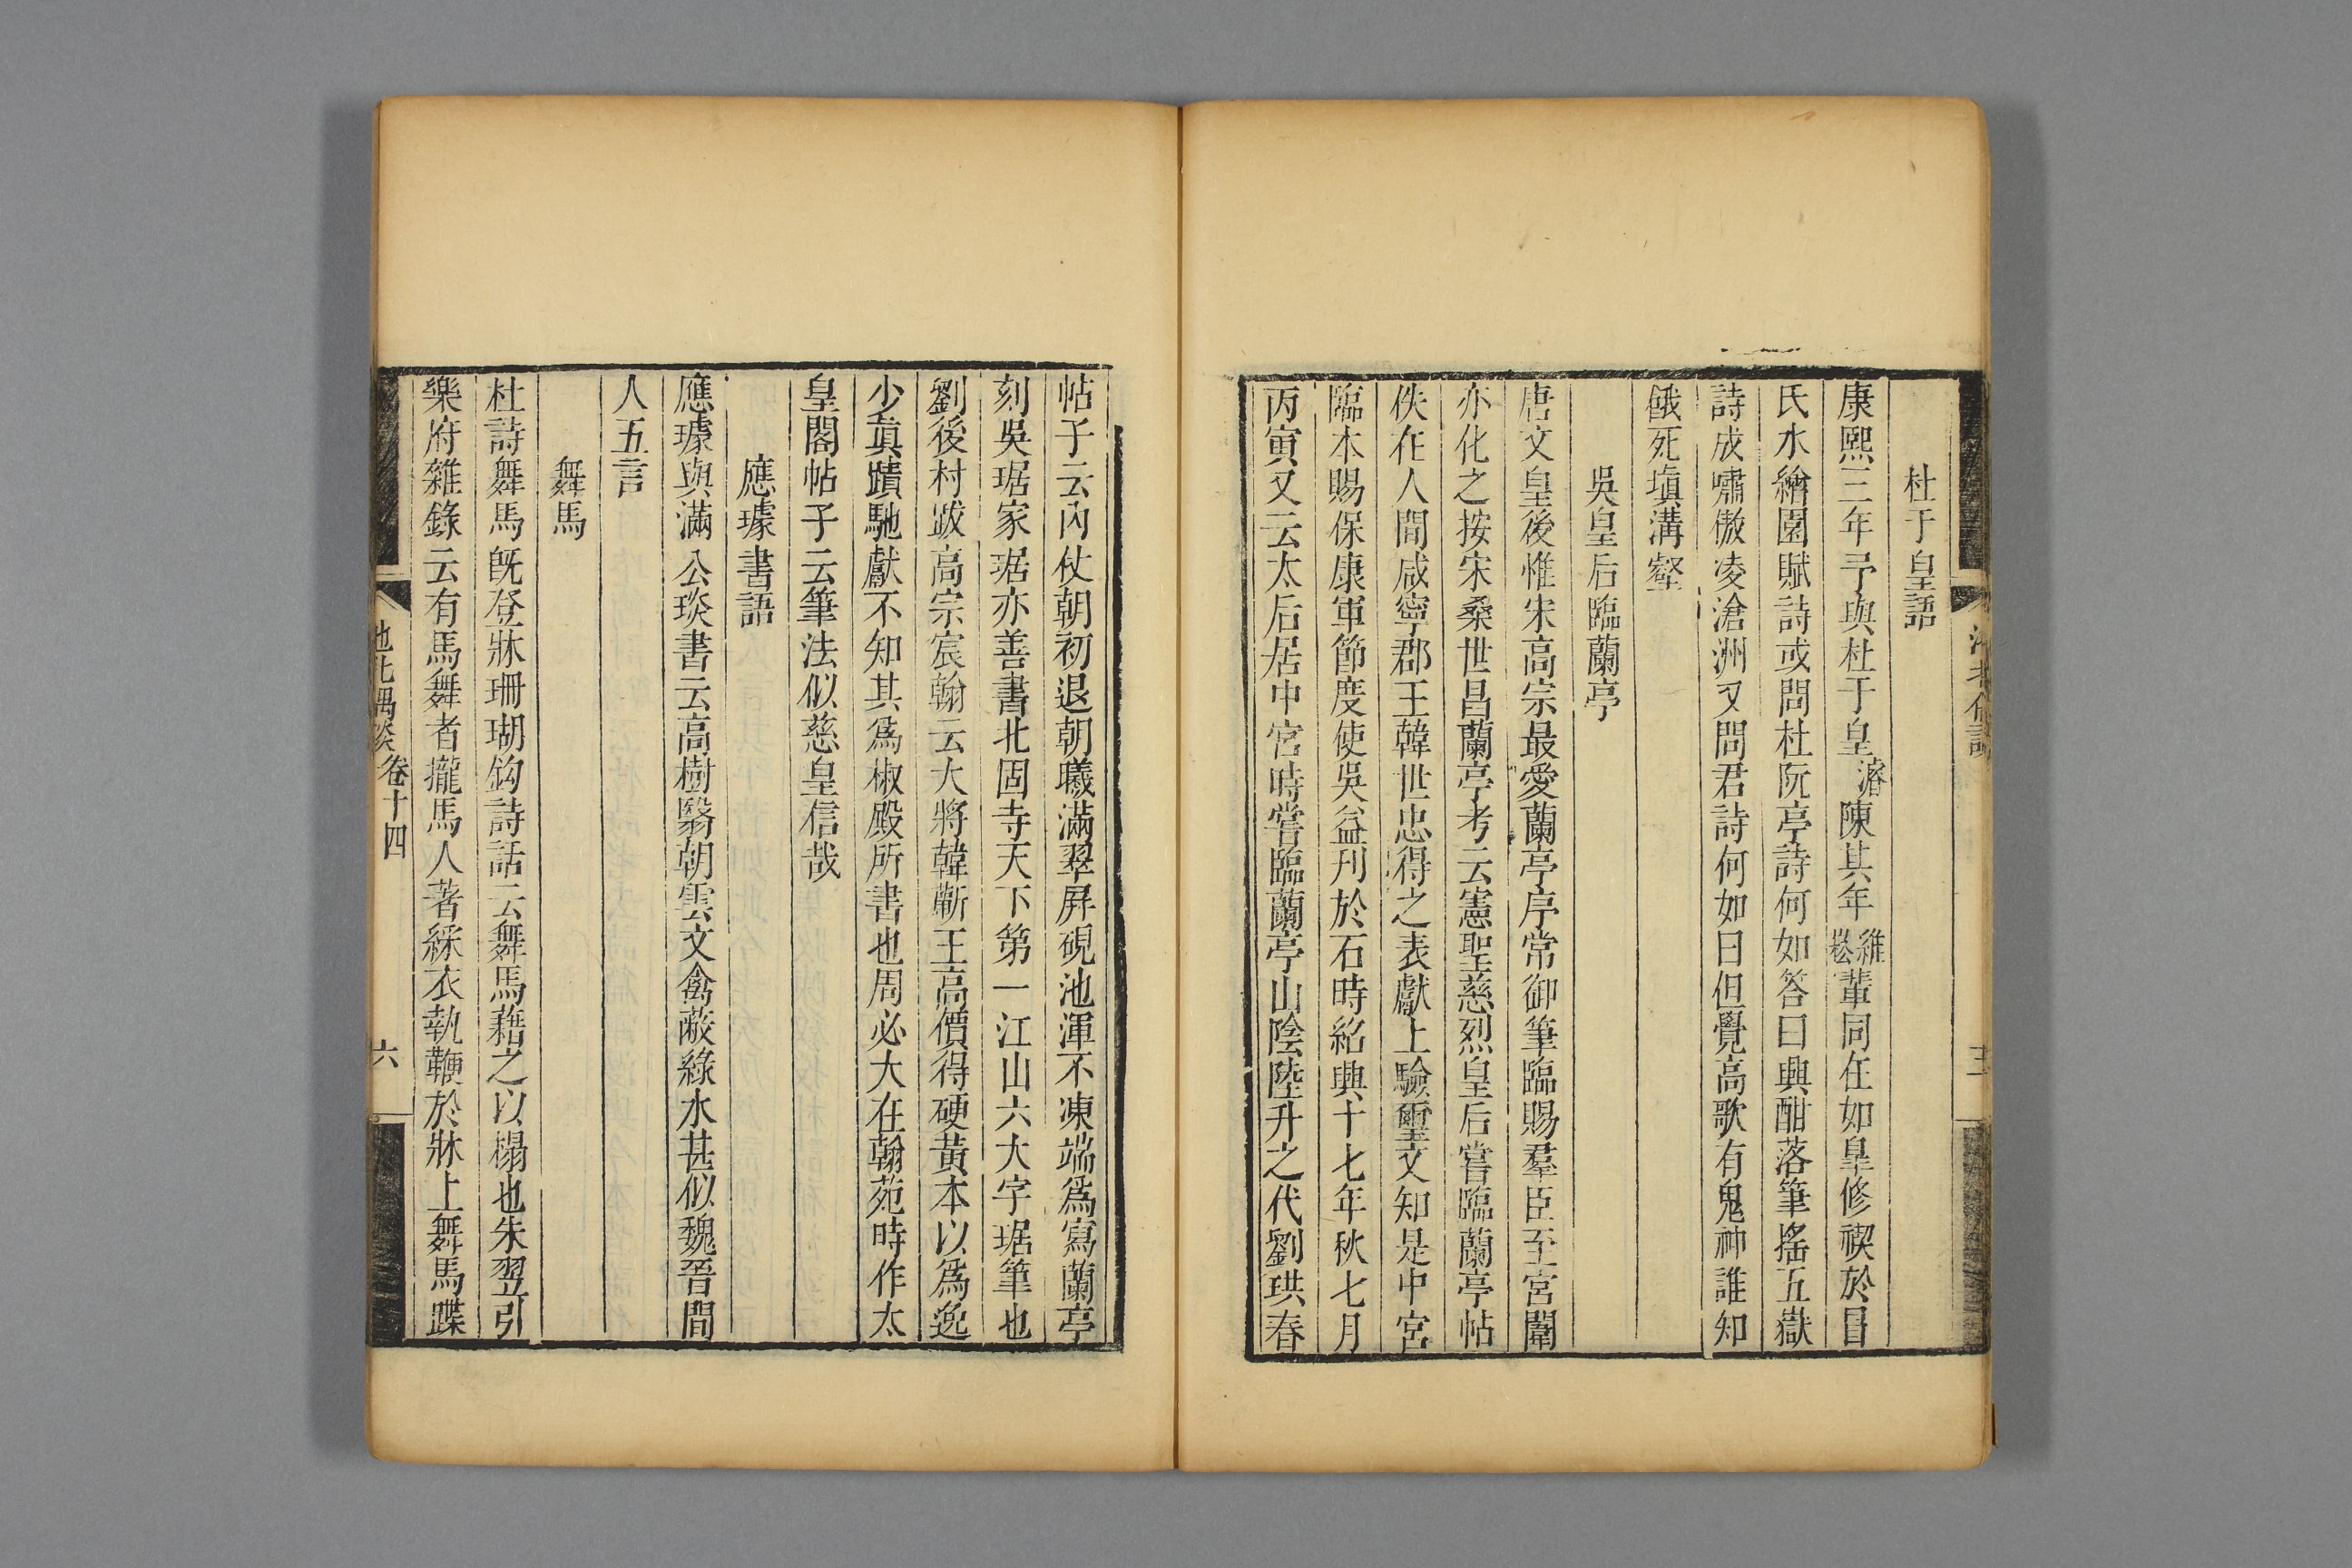 杜于皇語
康熙三年予與杜于皇濬陳其年維崧輩同在如皋修禊於冒
氏水繪園賦詩或問杜阮亭詩何如答曰興酣落筆搖五嶽
詩成嘯傲凌滄洲又問君詩何如曰但覺高歌有鬼神誰知
餓死塡溝壑
吳皇后臨蘭亭
唐文皇後惟宋高宗最愛蘭亭序常御筆臨賜羣臣至宮闈
亦化之按宋桑世昌蘭亭考云憲聖慈烈皇后嘗臨蘭亭帖
佚在人間咸寧郡王韓世忠得之表獻上驗璽文知是中宮
臨本賜保康軍節度使吳益刋於石時紹興十七年秋七月
丙寅又云太后居中宮時嘗臨蘭亭山陰陸升之代劉珙春
帖子云內仗朝初退朝曦滿翠屏硯池渾不凍端爲寫蘭亭
刻吳琚家琚亦善書北固寺天下第一江山六大字琚筆也
劉後村跋高宗宸翰云大將韓蘄王高價得硬黃本以爲逸
少眞蹟馳獻不知其爲椒殿所書也周必大在翰苑時作太
皇閣帖子云筆法似慈皇信哉
應璩書語
應璩與滿公琰書云高樹翳朝雲文禽蔽綠水甚似魏晉間
人五言
舞馬
杜詩舞馬旣登牀珊瑚鈎詩話云舞馬藉之以榻也朱翌引
樂府雜錄云有馬舞者攏馬人著綵衣執鞭於牀上舞馬蹀
池北偶談 卷十四 六